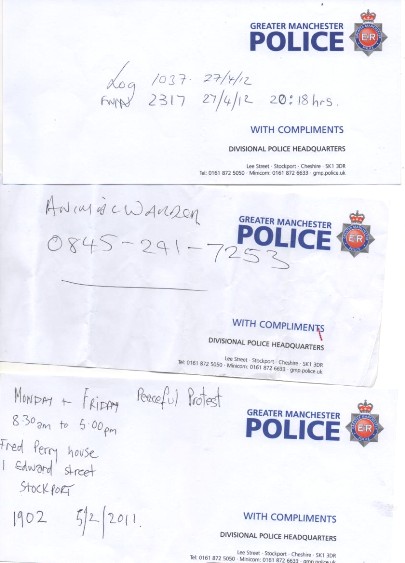 GREATER MANCHESTER
POLICE
Log 1037. 27/4/12
2317 27/4/12 20:18 hrs.
WITH COMPLIMENTS
DIVISIONAL POLICE HEADQUARTERS
Lee Street · Stockport · Cheshire · SK1 3DR
Tel: 0161 872 5050 · Minicom: 0161 872 6633 · gmp.police.uk
GREATER MANCHESTER
POLICE
WARDEN
0845-241-7253
WITH COMPLIMENTS
DIVISIONAL POLICE HEADQUARTERS
Lee Street · Stockport · Cheshire · SK1 3DR
Tel: 0161 872 5050 · Minicom: 0161 872 6633 · gmp.police.uk
MONDAY + FRIDAY Peaceful Protest
8:30am to 5:00pm
Fred Perry house
1 Edward street
STOCKPORT
1902 5/2/2011.
GREATER MANCHESTER
POLICE
WITH COMPLIMENTS
DIVISIONAL POLICE HEADQUARTERS
Lee Street · Stockport · Cheshire · SK1 3DR
Tel: 0161 872 5050 · Minicom: 0161 872 6633 · gmp.police.uk